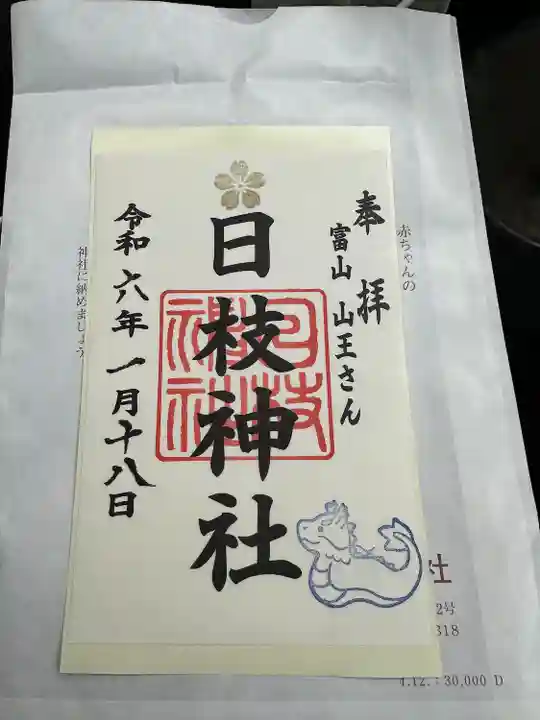 奉拝
富山 山王さん
日枝神社
日枝神社
令和六年一月十八日
赤ちゃんの
神社に納めましょう
社
2号
318
4.12.：30,000 D